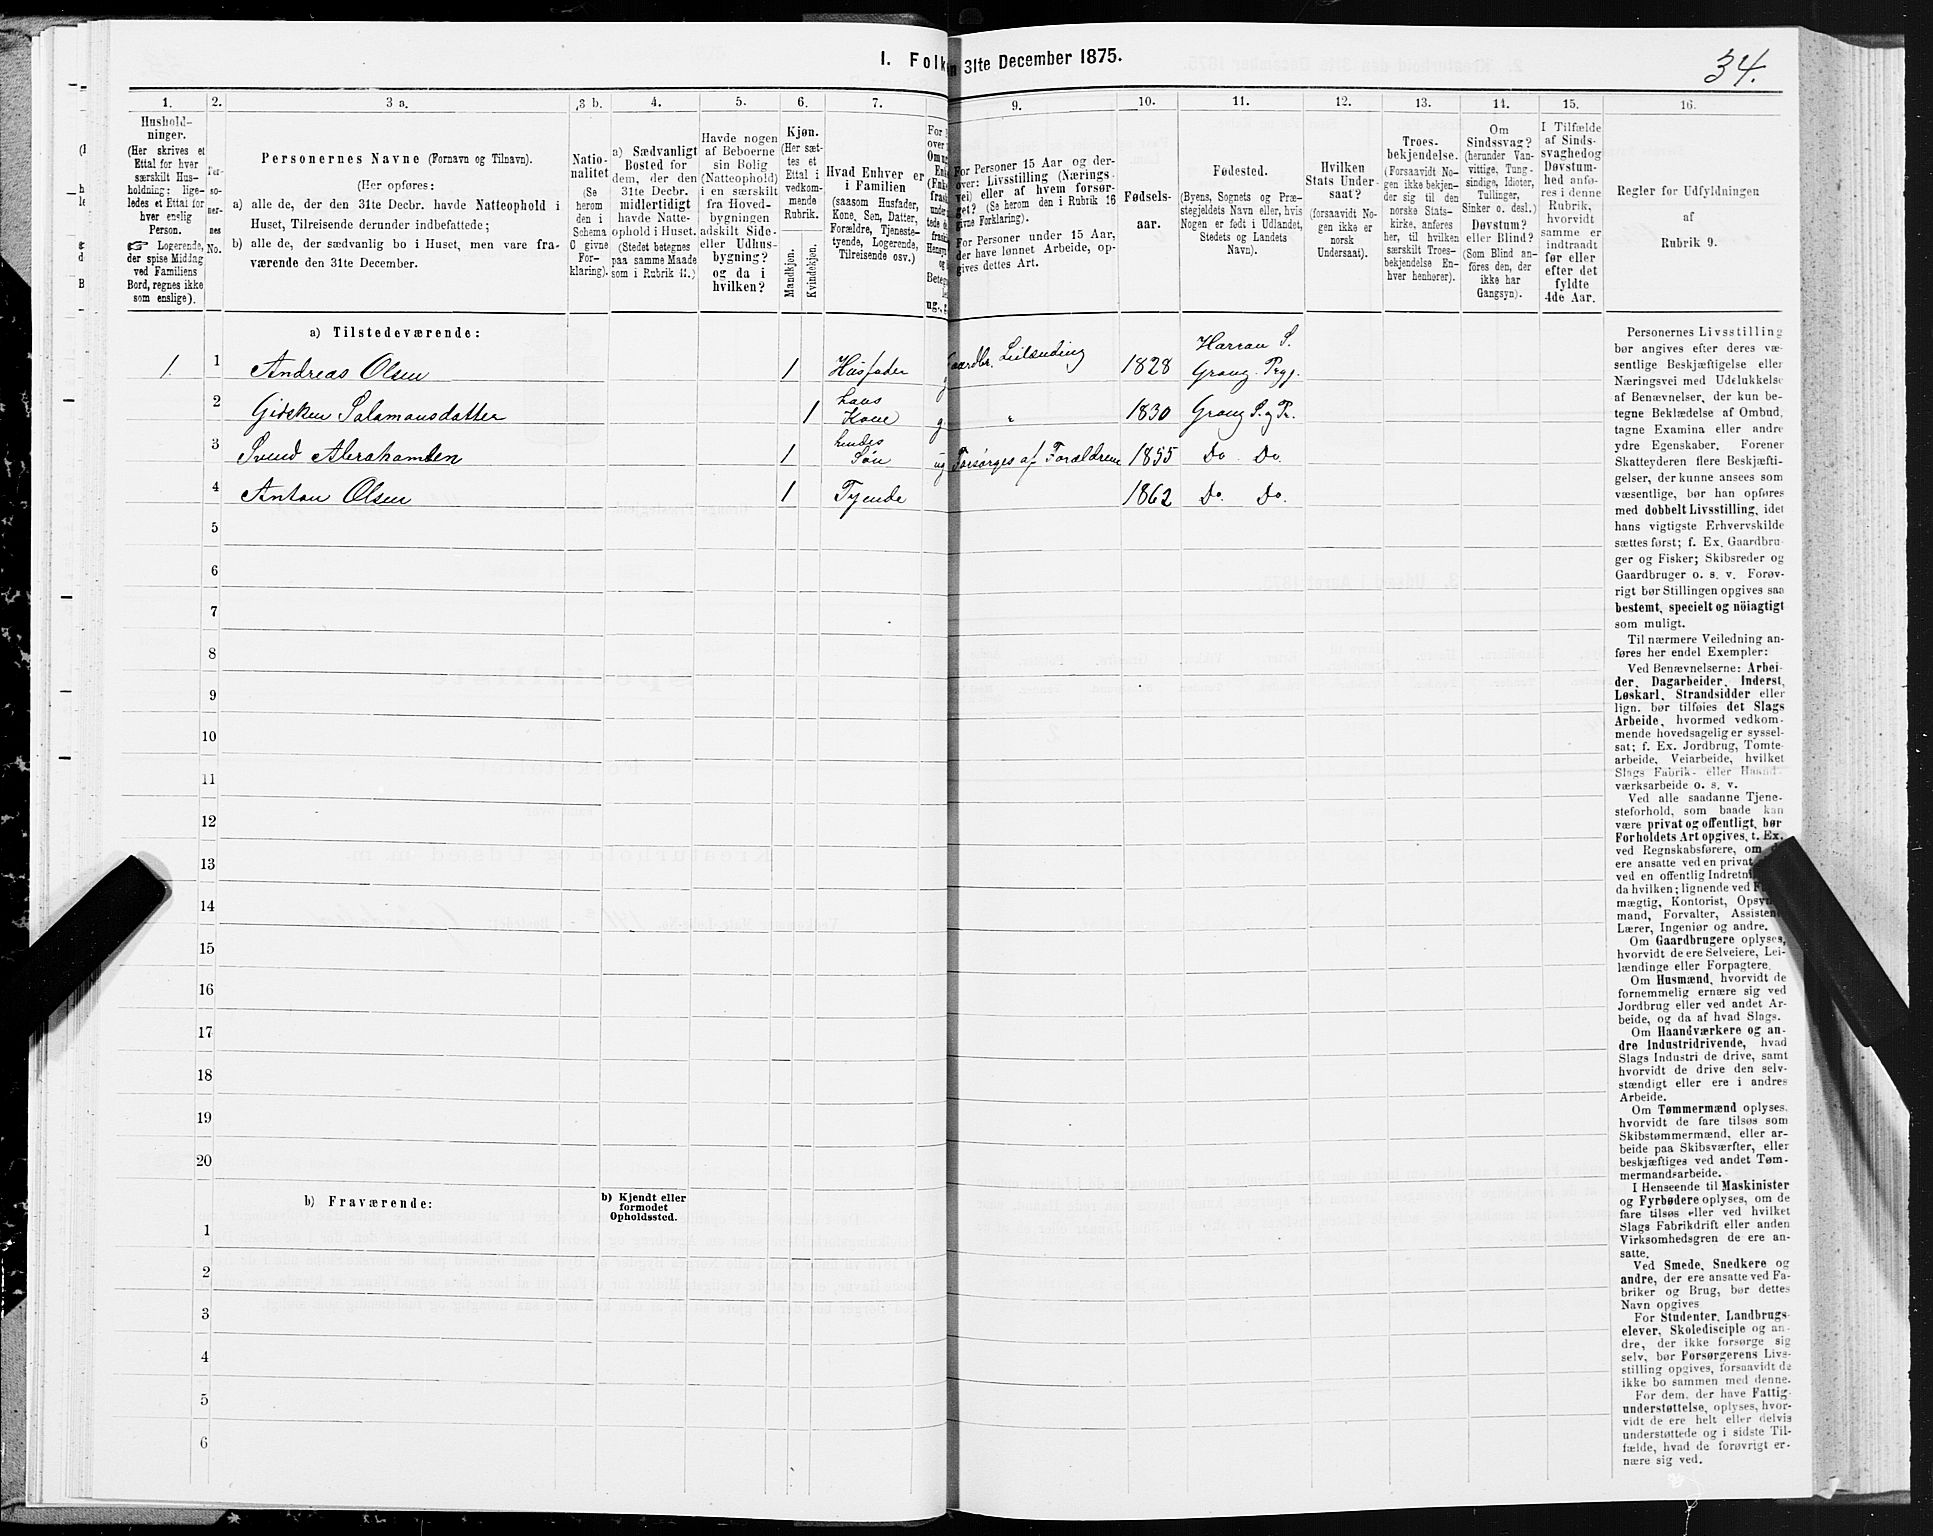 1. Folk n 31te December 1875.
34.
1. 2. 3 a. 3 b. 4. 5. 6. 7. 9. 10. 11. 12. 13. 14. 15. 16.
Hushold-
ninger.
(Her skrives et
Ettal for hver
særskilt Hus-
holdning; lige-
ledes et Ettal for
hver enslig
Person.
☞ Logerende,
der spise Middag
ved Familiens
Bord, regnes ikke
som enslige).
Per-
so-
ner-
nes
No.
Personernes Navne (Fornavn og Tilnavn).
(Her opføres:
a) alle de, der den 31te Decbr. havde Natteophold i
Huset, Tilreisende derunder indbefattede;
b) alle de, der sædvanlig bo i Huset, men vare fra-
værende den 31te December.
Natio-
nalitet
(Se
herom
den i
Schema
C givne
For-
klaring).
a) Sædvanligt
Bosted for
dem, der den
31te Decbr.
midlertidigt
havde Natte-
ophold i Huset.
(Stedet betegnes
paa samme Maade
som i Rubrik 11.)
Havde nogen
af Beboerne
sin Bolig
(Natteophold)
i en særskilt
fra Hoved-
bygningen
adskilt Side-
eller Udhus-
bygning?
og da i
hvilken?
Kjøn.
(Her sæt-
tes et
Ettal i
vedkom-
mende
Rubrik.
Mandkjøn.
Kvindekjøn.
Hvad Enhver er
i Familien
(saasom Husfader,
Kone, Søn, Datter,
Forældre, Tjeneste-
tyende, Logerende,
Tilreisende osv.)
For Personer 15 Aar og der-
over: Livsstilling (Nærings-
vei) eller af hvem forsør-
get? (Se herom den i Rubrik 16
givne Forklaring).
For Personer under 15 Aar,
der have lønnet Arbeide, op-
gives dettes Art.
Fødsels-
aar.
Fødested.
(Byens, Sognets og Præ-
stegjeldets Navn eller, hvis
Nogen er født i Udlandet,
Stedets og Landets
Navn).
Hvilken
Stats Under-
saat?
(forsaavidt No-
gen ikke er
norsk
Undersaat).
Troes-
bekjendelse.
(Forsaavidt No-
gen ikke bekjen-
der sig til den
norske Stats-
kirke, anføres
her, til hvilken
særskilt Troes-
bekjendelse En-
hver henhører).
Om
Sindssvag?
(herunder Van-
vittige, Tung-
sindige, Idioter,
Tullinger,
Sinker o. desl.)
Døvstum?
eller Blind?
(Som Blind an-
føres den, der
ikke har
Gangsyn).
I Tilfælde
af Sinds-
svaghedog
Døvstum-
hed anfø-
res i denne
Rubrik,
hvorvidt
samme er
indtraadt
før eller
efter det
fyldte
4de Aar.
Regler for Udfyldningen
af
Rubrik 9.
a) Tilstedeværende:
1. 1 Andreas Olsen 1 Husfader g Gaardbr. Leilænding 1828 Harran S. Grong Prgj.
2 Gidsken Salamonsdatter 1 hans Kone g. " 1830 Grong S. og Pr.
3 Svend Abrahamsen 1 hendes Søn ug Forsørges af Forældrene 1855 Do. Do.
4 Anton Olsen 1 Tyende 1862 Do. Do.
5
6
7
8
9
10
11
12
13
14
15
16
17
18
19
20
b) Fraværende: b) Kjendt eller
formodet
Opholdssted.
1
2
3
4
5
6
Personernes Livsstilling
bør angives efter deres væ-
sentlige Beskjæftigelse eller
Næringsvei med Udelukkelse
af Benævnelser, der kun be-
tegne Beklædelse af Ombud,
tagne Examina eller andre
ydre Egenskaber. Forener
Skatteyderen flere Beskjæfti-
gelser, der kunne ansees som
væsentlige, bør han opføres
med dobbelt Livsstilling, idet
hans vigtigste Erhvervskilde
sættes først; f. Ex. Gaardbru-
ger og Fisker; Skibsreder og
Gaardbruger o. s. v. Forøv-
rigt bør Stillingen opgives saa
bestemt, specielt og nöiagtigt
som muligt.
Til nærmere Veiledning an-
føres her endel Exempler:
Ved Benævnelserne: Arbei-
der, Dagarbeider, Inderst,
Løskarl, Strandsidder eller
lign. bør tilføies det Slags
Arbeide, hvormed vedkom-
mende hovedsagelig er syssel-
sat; f. Ex. Jordbrug, Tomte-
arbeide, Veiarbeide, hvilket
Slags Fabrik- eller Haand-
værksarbeide o. s. v.
Ved alle saadanne Tjene-
steforhold, som baade kan
være privat og offentligt, bør
Forholdets Art opgives, t. Ex.
ved Regnskabsførere, om
ere ansatte ved en privat
ved en offentlig Indretni
da hvilken; lignende ved F
mægtig, Kontorist, Opsyn
mand, Forvalter, Assistent
Lærer, Ingeniør og andre.
Om Gaardbrugere oplyses,
hvorvidt de ere Selveiere, Lei-
lændinge eller Forpagtere.
Om Husmænd, hvorvidt de
fornemmelig ernære sig ved
Jordbrug eller ved andet Ar-
beide, og da af hvad Slags.
Om Haandværkere og an-
dre Industridrivende, hvad
Slags Industri de drive, samt
hvorvidt de drive den selv-
stændigt eller ere i andres
Arbeide.
Om Tømmermænd oplyses,
hvorvidt de fare tilsøs som
Skibstømmermænd, eller ar-
beide paa Skibsværfter, eller
beskjæftiges ved andet Tøm-
mermandsarbeide.
I Henseende til Maskinister
og Fyrbødere oplyses, om de
fare tilsøs eller ved hvilket
Slags Fabrikdrift eller anden
Virksomhedsgren de ere an-
satte.
Ved Smede, Snedkere og
andre, der ere ansatte ved Fa-
briker og Brug, bør dettes
Navn opgives
For Studenter, Landbrugs-
elever, Skoledisciple og an-
dre, der ikke forsørge sig
selv, bør Forsørgerens Livs-
stilling opgives, forsaavidt de
ikke bo sammen med denne.
For dem, der have Fattig-
understøttelse, oplyses, hvor-
vidt de ere helt eller delvis
understøttede og i sidste Til-
fælde, hvad de forøvrigt er-
nære sig ved.